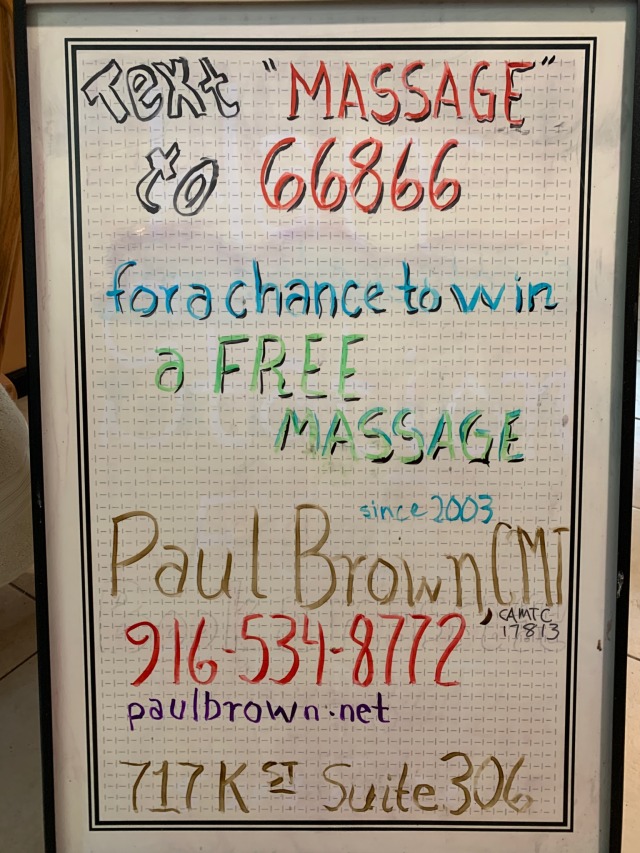 Text "MASSAGE"
to 66866
for a chance to win
a FREE
MASSAGE
since 2003
Paul Brown, CMT
CAMTC
17813
916-534-8772
paulbrown.net
717 K ST Suite 306